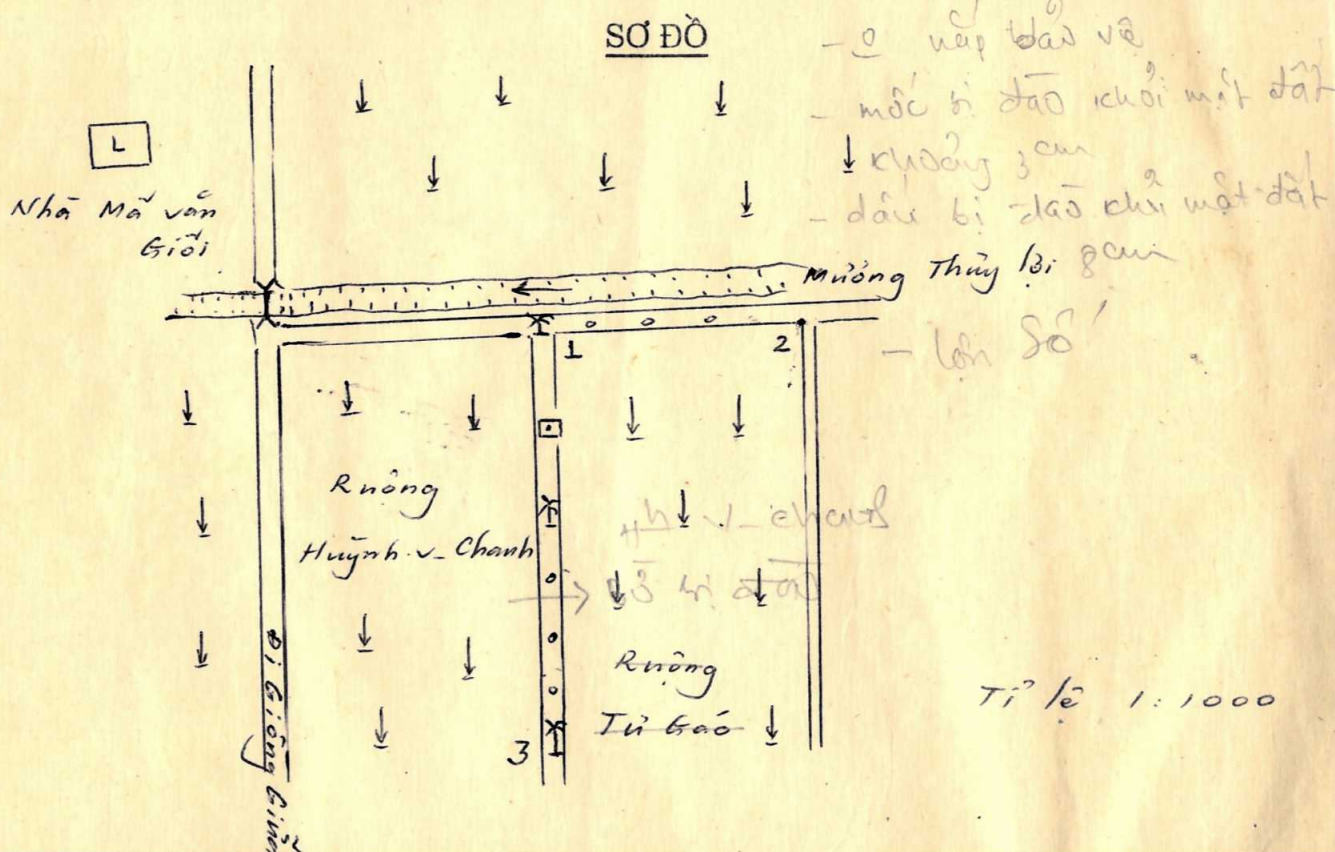 SƠ ĐỒ
- o nắp bảo vệ
- mốc bị đào khỏi mặt đất
khoảng 3 cm
- dấu bị đào khỏi mặt đất
8cm
- lộn Số
L
Nhà Mã văn
Giỏi
Mương Thủy lợi
1
2
Ruộng
Huỳnh-v-Chanh
v-chanh
bị đào
Ruộng
Tư Gáo
3
Đi Giồng
Tỉ lệ 1:1000